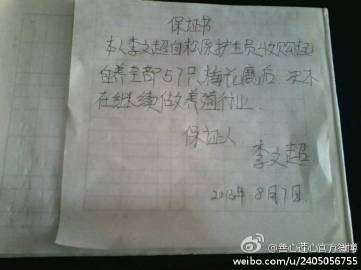 保证书
本人李文超自松原护生员收购起
自养全部57只梅花鹿后 决不
在继续做养殖行业.
保证人
李文超
2013年.8月7日
@善心莲心官方微博
weibo.com/u/2405056755